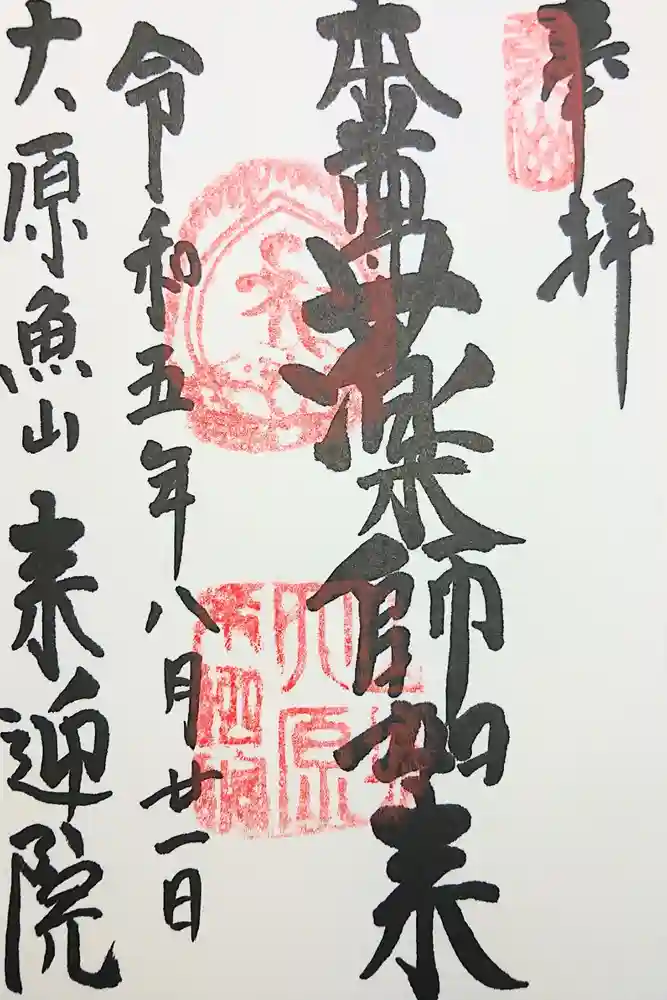 奉拝
本尊薬師如来
令和五年八月廿一日
大原魚山来迎院
大原